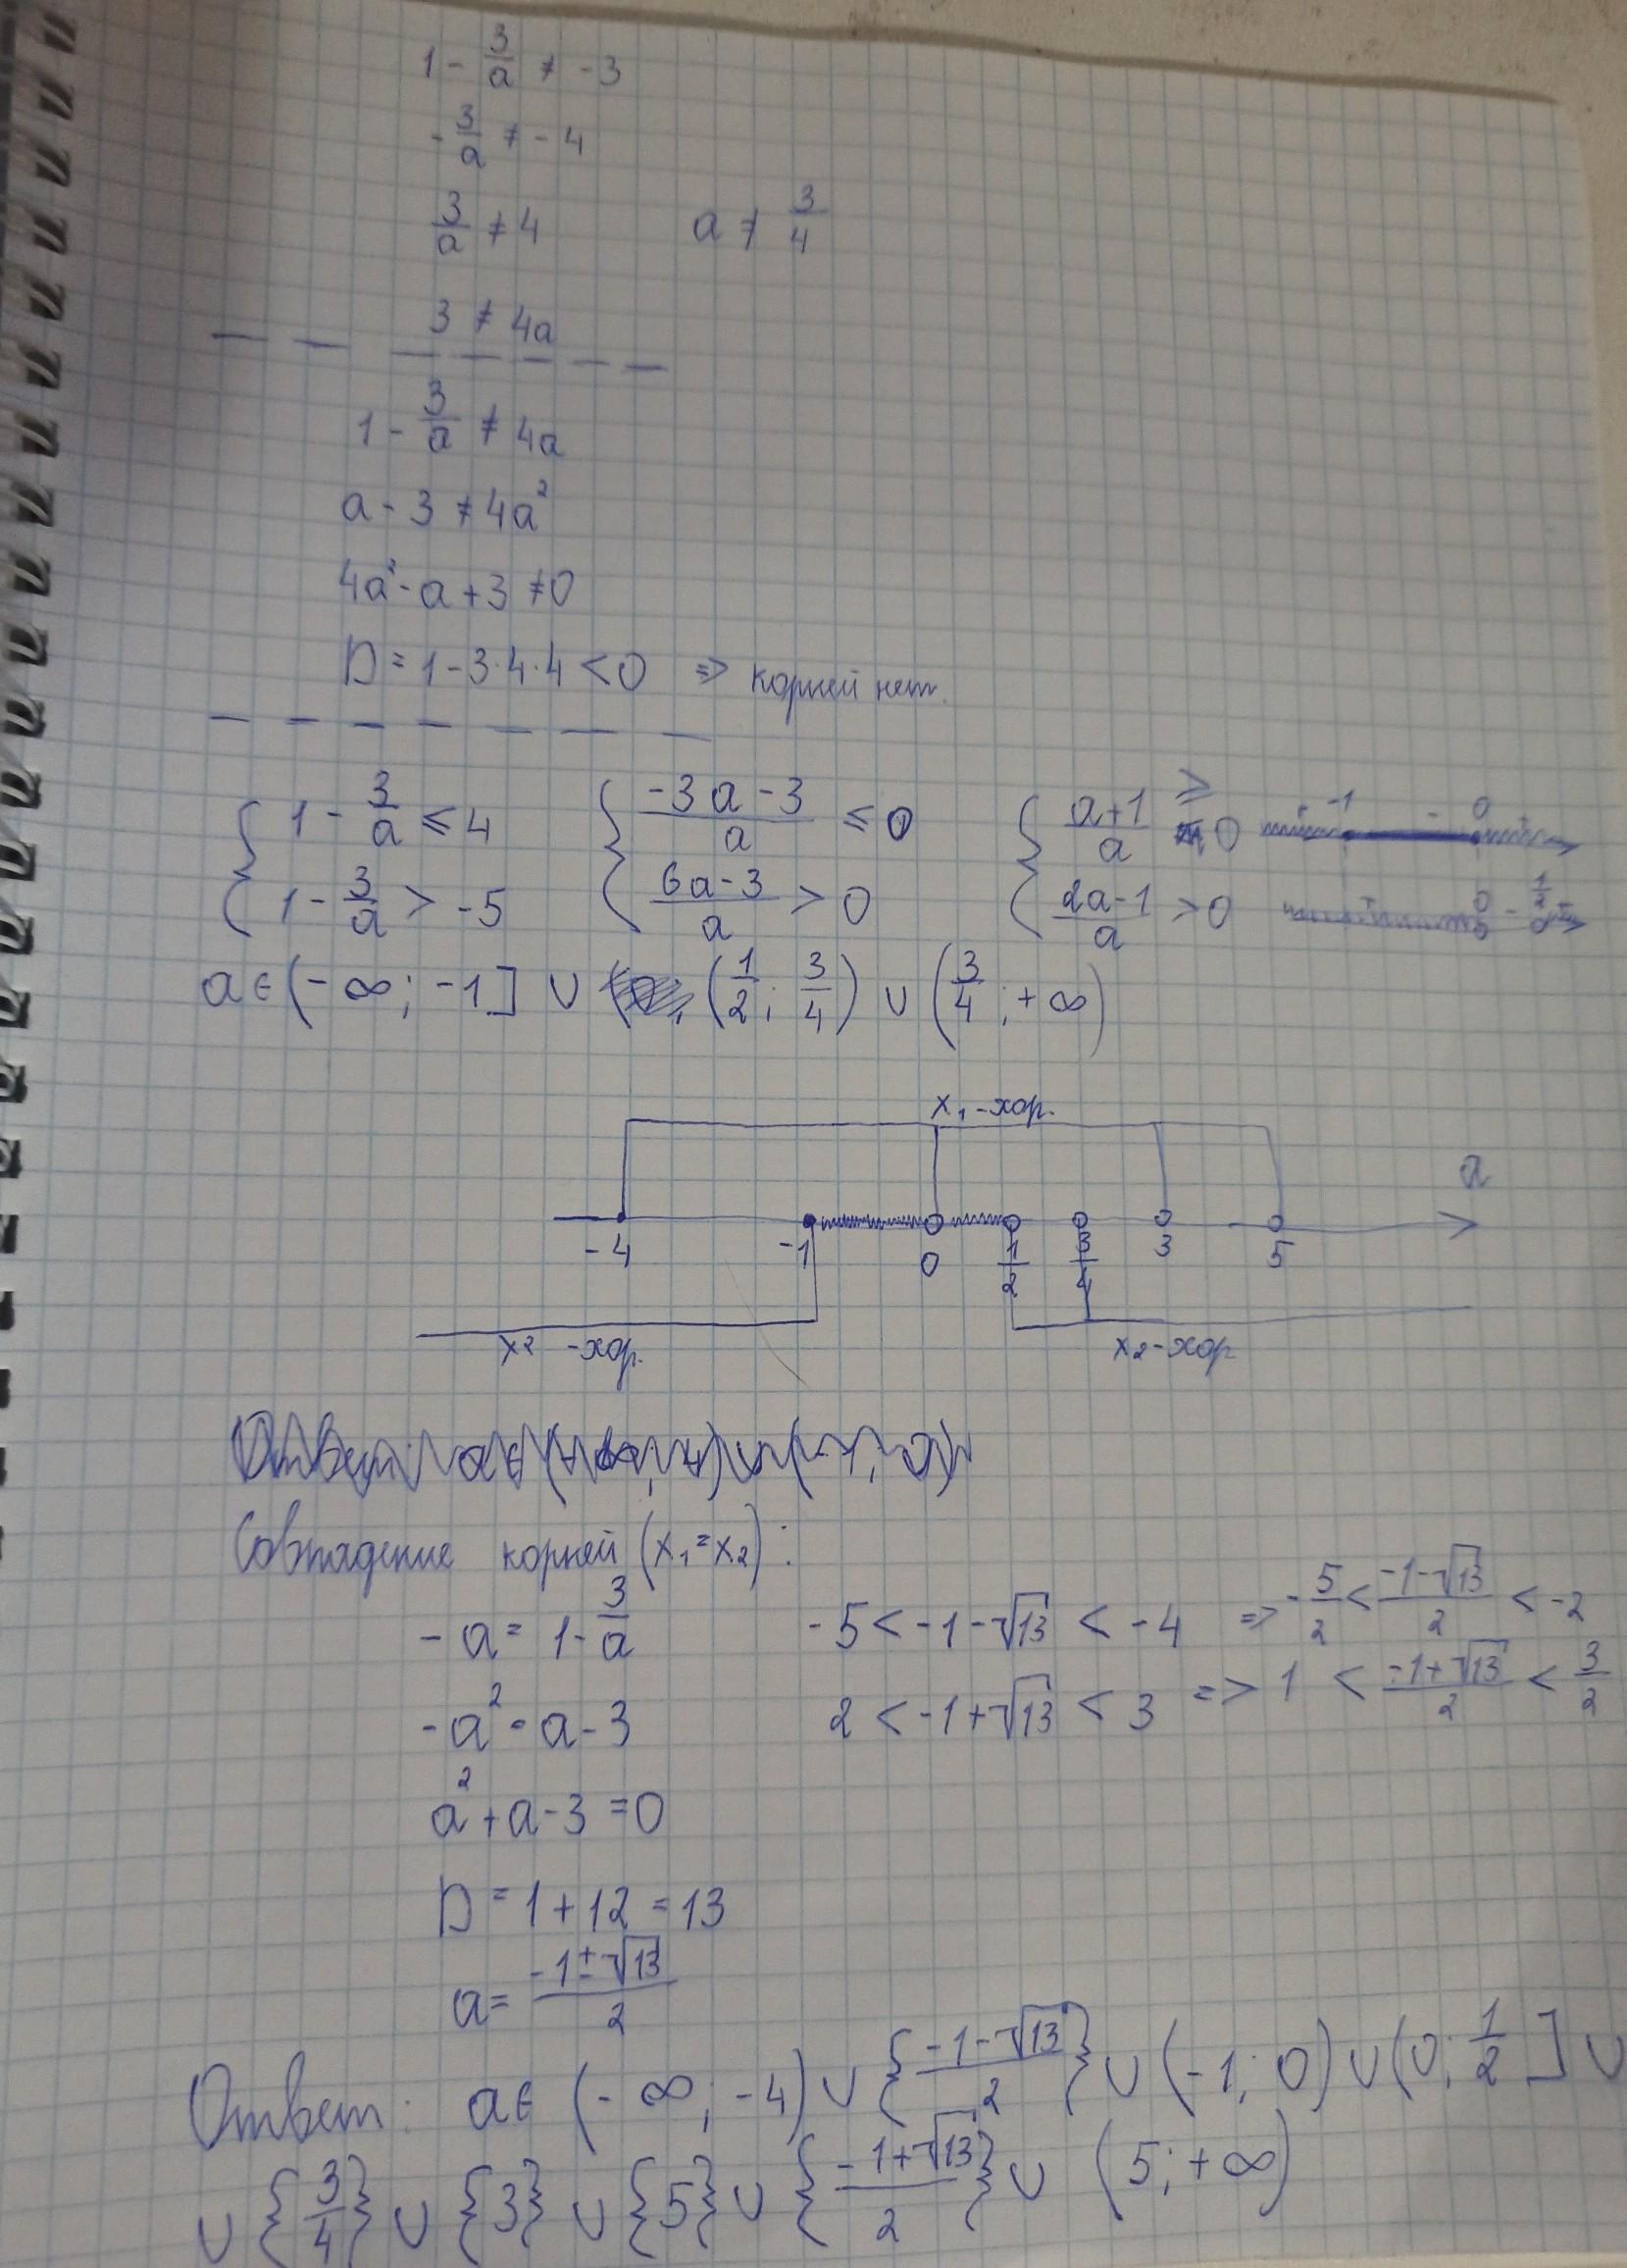 1 - 3/a ≠ -3
-3/a ≠ -4
3/a ≠ 4 a ≠ 3/4
3 ≠ 4a
1 - 3/a ≠ 4a
a - 3 ≠ 4a²
4a² - a + 3 ≠ 0
D = 1 - 3·4·4 < 0 => корней нет.
{ 1 - 3/a ≤ 4 { (-3a-3)/a ≤ 0 { (a+1)/a ≥ 0 + -1 - 0 +
{ 1 - 3/a > -5 { (6a-3)/a > 0 { (2a-1)/a > 0 + 0 - 1/2 +
a ∈ (-∞; -1] ∪ (1/2; 3/4) ∪ (3/4; +∞)
x₁ - хор.
a
-4 -1 0 1/2 3/4 3 5
x₂ - хор. x₂ - хор
Совпадение корней (x₁ = x₂):
-a = 1 - 3/a -5 < -1-√13 < -4 => -5/2 < (-1-√13)/2 < -2
-a² = a - 3 2 < -1+√13 < 3 => 1 < (-1+√13)/2 < 3/2
a² + a - 3 = 0
D = 1 + 12 = 13
a = (-1±√13)/2
Ответ: a ∈ (-∞; -4) ∪ {(-1-√13)/2} ∪ (-1; 0) ∪ (0; 1/2] ∪
∪ {3/4} ∪ {3} ∪ {5} ∪ {(-1+√13)/2} ∪ (5; +∞)